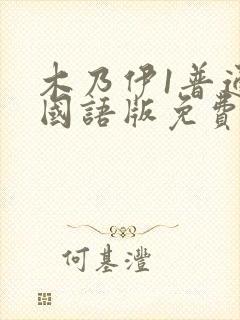 木乃伊1普通
國語版免費
何基灃